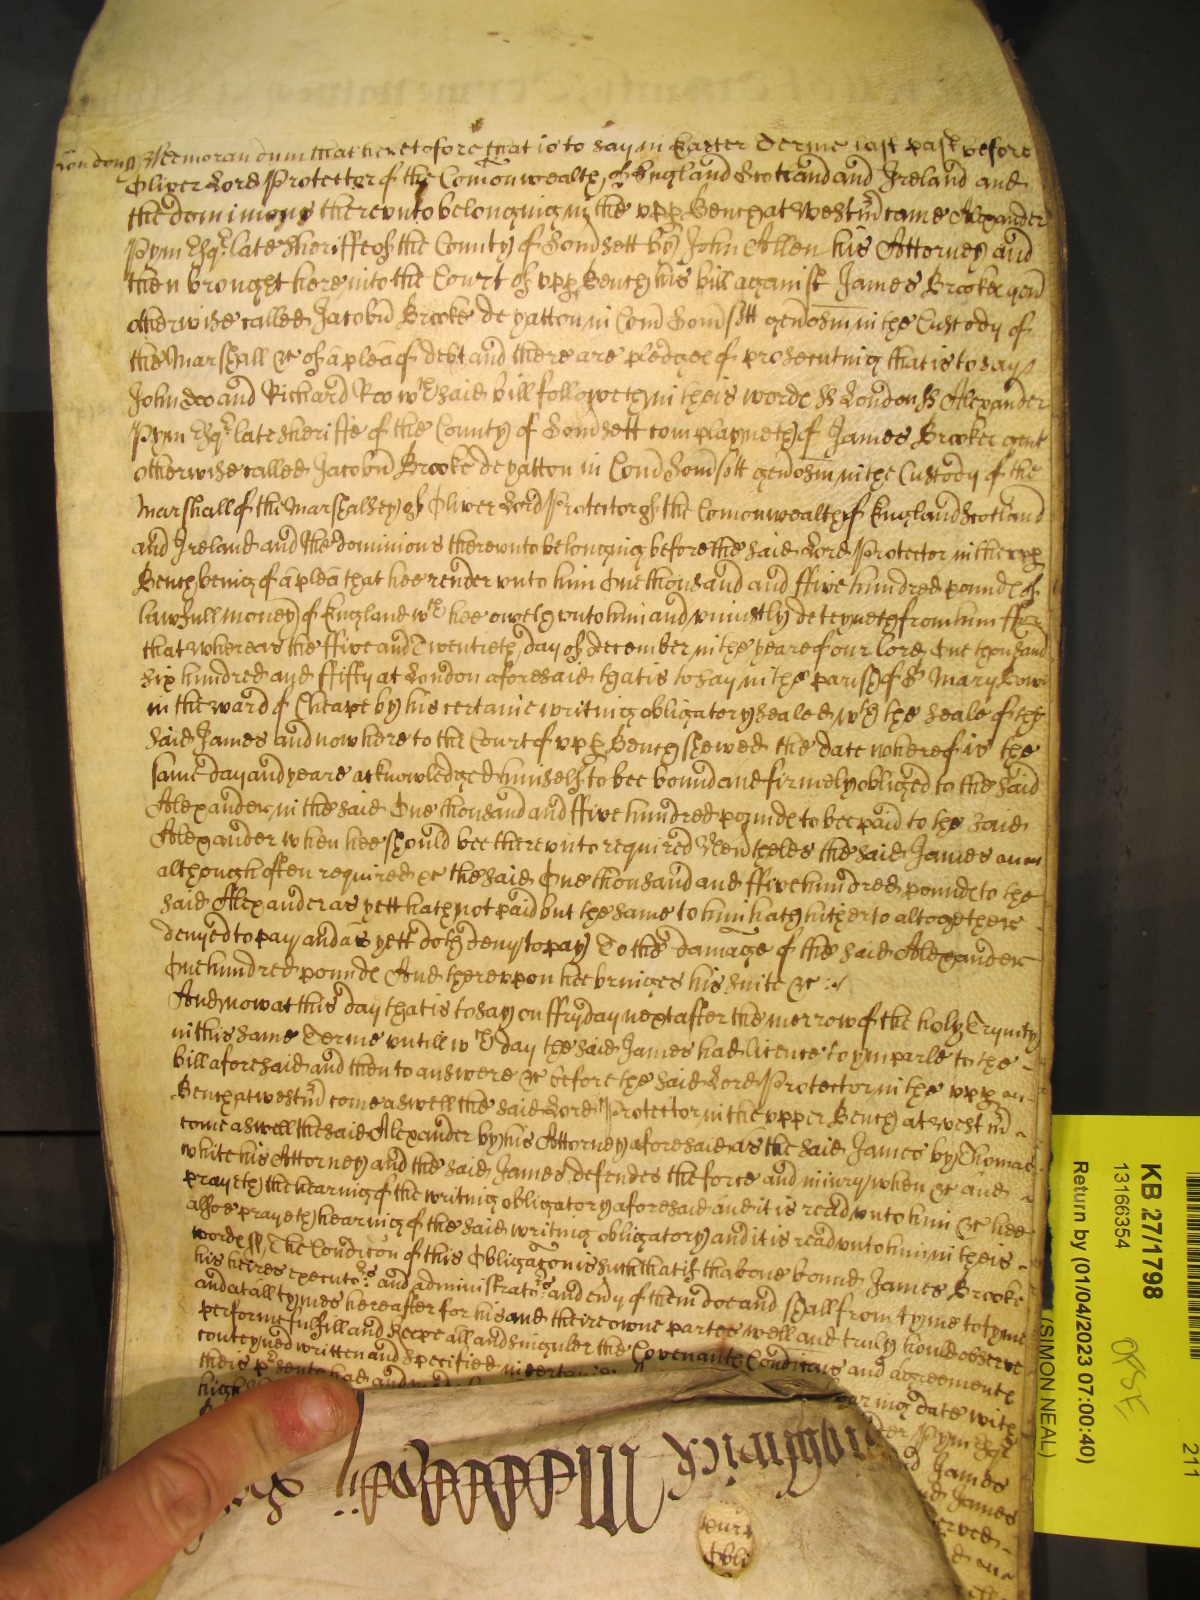 London ss Memorandum that heretofore that is to say in Easter Terme last past before
Oliver Lord Protector of the Comonwealth of England Scotland and Ireland and
the dominions thereunto belonging in the upp Bench at Westm came Alexander
Pym Esqr late Sheriffe of the County of Somsett by John Allen his Attorney and
then brought here into the Court of upp Bench his bill against James Brooke gen
otherwise called Jacobu Brooke de yatton in Com Somsett genosm in the Custody of
the Marshall &c of a plea of debt and there are pledges of prosecuting that is to say
John doo and Richard Roo wch said bill followeth in theis words ss London ss Alexander
Pym Esqr late Sheriffe of the County of Somsett complayneth of James Brooke gent
otherwise called Jacobu Brooke de yatton in Com Somsett genosm in the Custody of the
Marshall of the Marshalsey of Oliver Lord Protector of the Comonwealth of England Scotland
and Ireland and the dominions thereunto belonging before the said Lord Protector in the upp
Bench being of a plea that hee render unto him One thousand and ffive hundred pounds of
lawfull money of England wch hee oweth unto him and uniustly deteyneth from him ffor
that whereas the ffive and Twentieth day of december in the yeare of our Lord One thousand
six hundred and ffifty at London aforesaid that is to say in the parish of St Mary Bow
in the ward of Cheape by his certaine writing obligatory sealed wth the seale of the
said James and now here to the Court of upp Bench shewed the date whereof is the
same day and yeare acknowledged himself to bee bound and firmely obliged to the said
Alexander in the said One thousand and ffive hundred pounds to bee paid to the said
Alexander when hee should bee thereunto required Neverthelesse the said James
although often required &c the said One thousand and ffive hundred pounds to the
said Alexander as yett hath not paid but the same to him hath hitherto altogether
denyed to pay and as yett doth deny to pay To the damage of the said Alexander
One hundred pounds And thereupon hee bringes his suite &c
And now at this day that is to say on ffryday next after the morrow of the holy Trynity
in this same Terme untill wch day the said James had licence to ymparle to the
bill aforesaid and then to answere &c before the said Lord Protector in the upp
Bench at westm come aswell the said Lord Protector in the upper Bench at westm
come aswell the said Alexander by his Attorney aforesaid as the said James by Thomas
White his Attorney and the said James defendes the force and iniury when &c and
prayeth the hearing of the writing obligatory aforesaid and it is read unto him &c hee
alsoe prayeth hearing of the said writing obligatory and it is read unto him in theis
words ss The Condicon of this Obligacon is such that if thabove bound James Brooke
his heires executors and administrators and evy of them doe and shall from tyme to tyme
and at all tymes hereafter for his and theire owne partes well and truly hould observe
performe fulfill and keepe all and singuler the Covenants Condicons and agreements
conteyned written and specified in
theis psents had and
high
bearing date with
Pym Esqr
James
James
KB 27/1798
13166354
Return by (01/04/2023 07:00:40)
(SIMON NEAL)
211